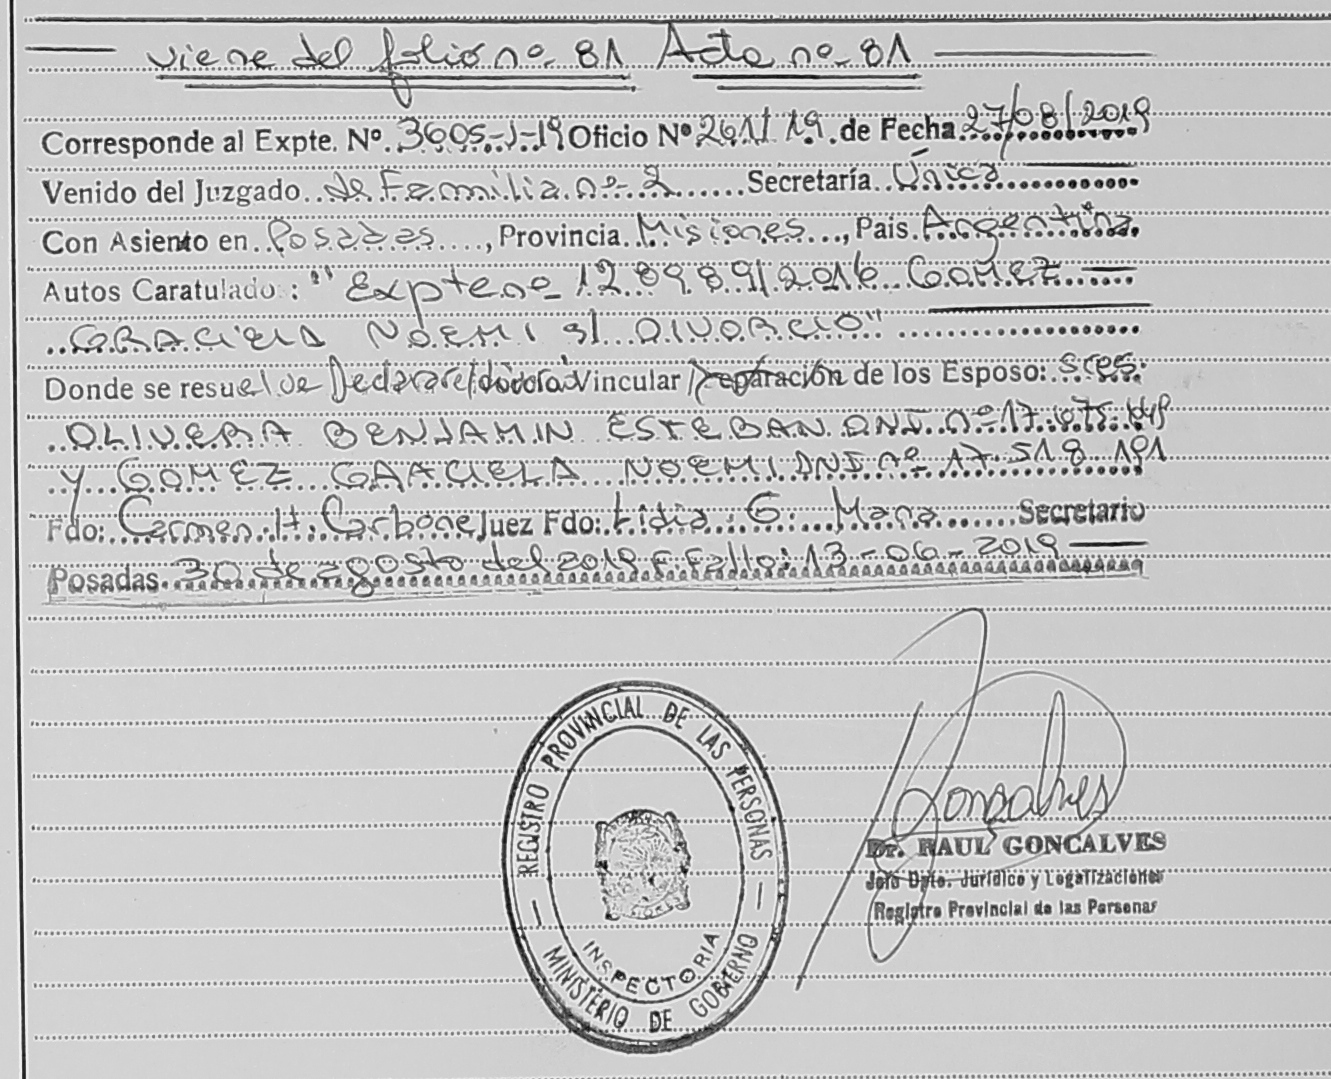 viene del folio nº 81 Acta nº 81
Corresponde al Expte. Nº 3605-J-19 Oficio Nº 261/19 de Fecha 27/08/2019
Venido del Juzgado de Familia nº 2 Secretaría Única
Con Asiento en Posadas, Provincia Misiones, Pais Argentina
Autos Caratulado: "Expte nº 128989/2016 GOMEZ
GRACIELA NOEMI s/ DIVORCIO"
Donde se resuelve Declarar el divorcio Vincular Separación de los Esposo: Sres.
OLIVERA BENJAMIN ESTEBAN DNI nº 17.
y GOMEZ GRACIELA NOEMI DNI nº 17.518.191
Fdo: Carmen H. Carbone Juez Fdo: Lidia G. Secretario
Posadas 30 de agosto del 2019 F. Fallo: 13-06-2019
REGISTRO PROVINCIAL DE LAS PERSONAS
INSPECTORIA
MINISTERIO DE GOBIERNO
Gonçalves
Dr. RAUL GONCALVES
Jefe Dpto. Jurídico y Legalizaciones
Registro Provincial de las Personas